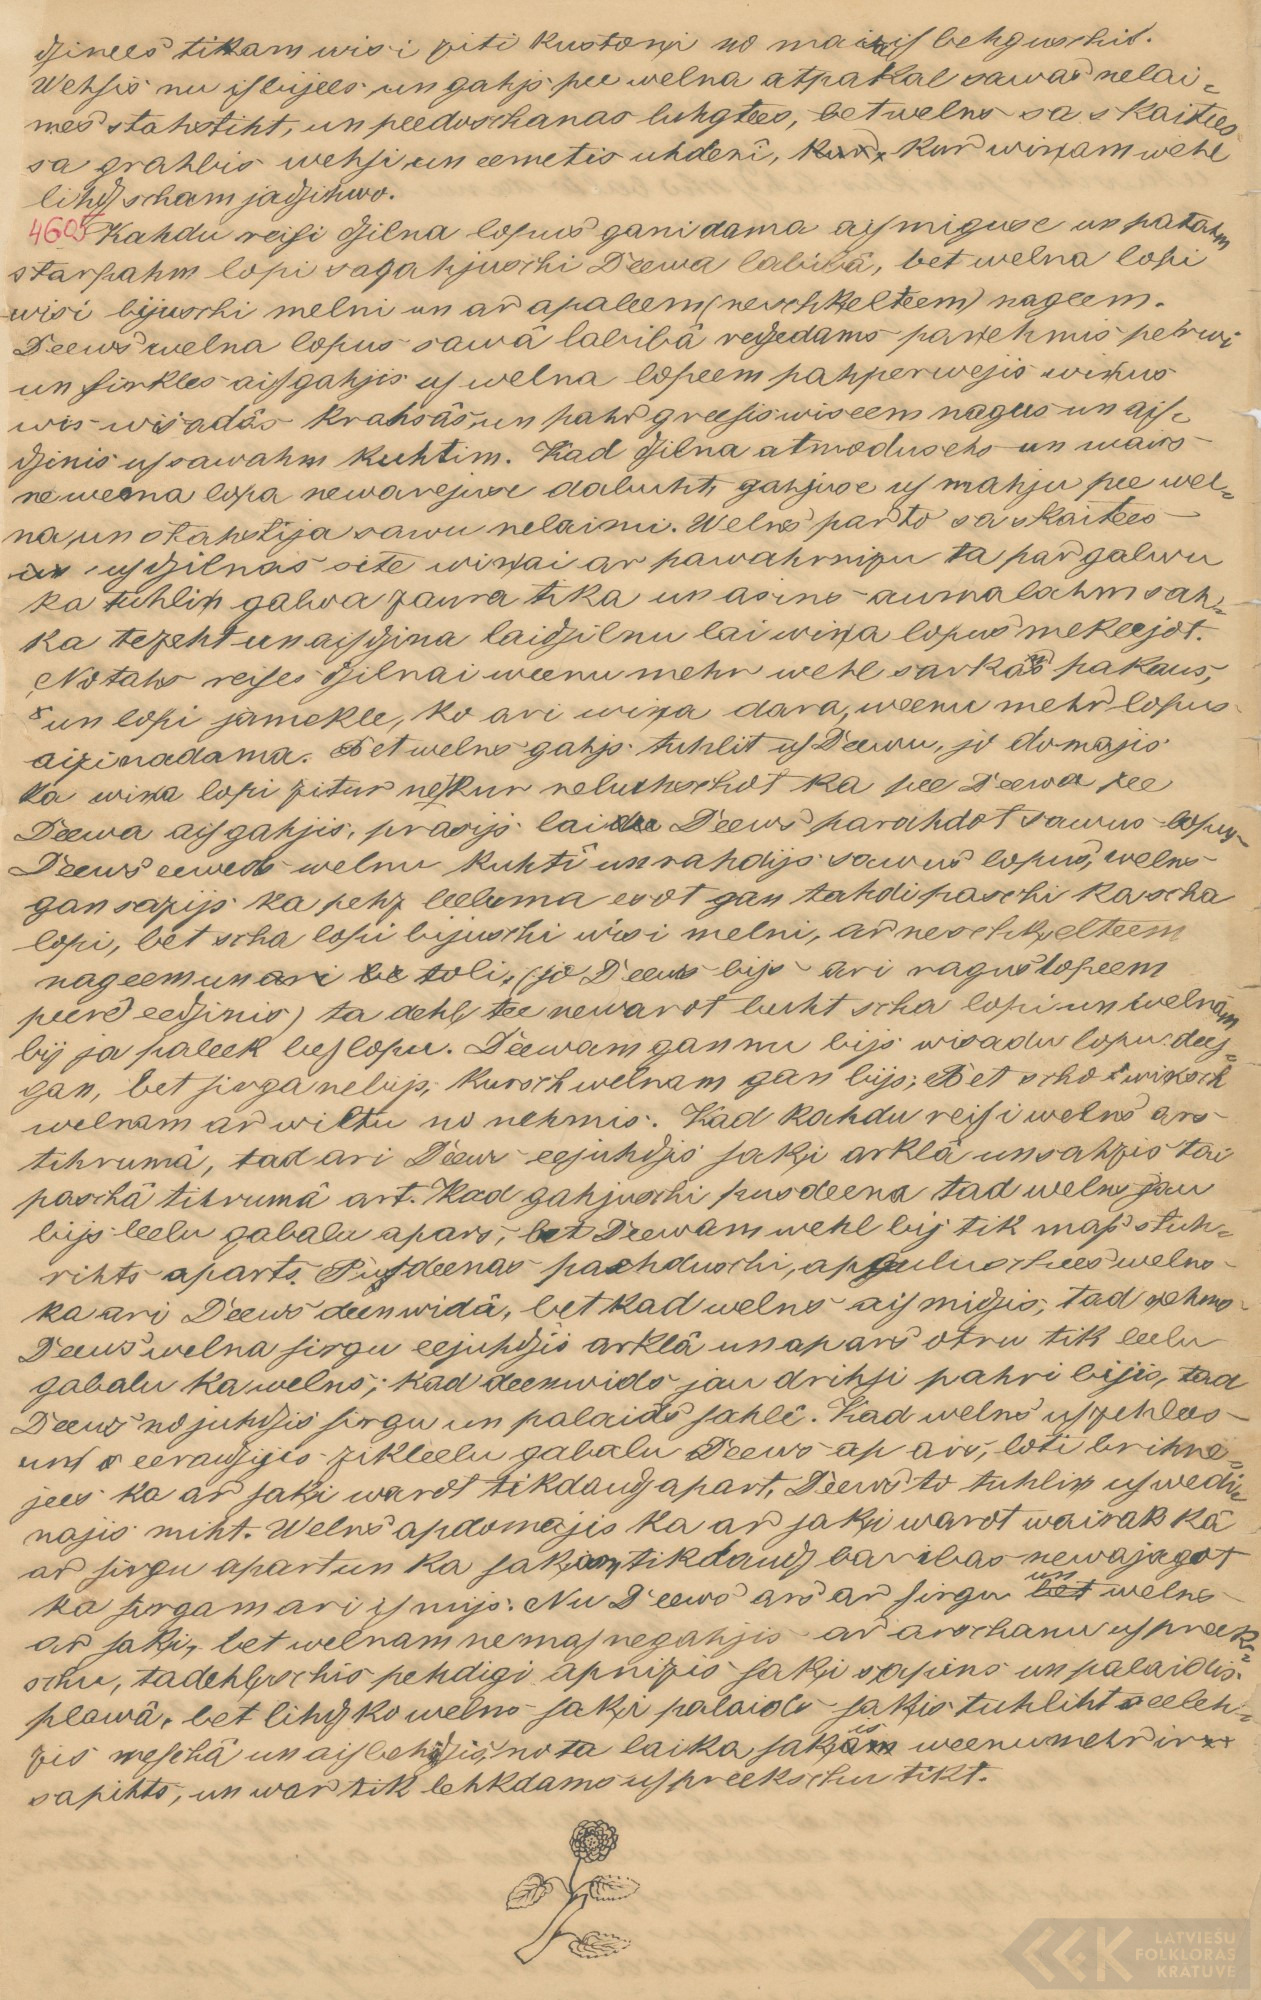 dzinees tikam wisi ziti kustoņi no mais behguschis.
Wehsis nu isbijees un gahjs pee welna atpakal sawas nelai=
mes stahstiht, un peedoschanas luhgtees, bet welns sa skaitees
sa grahbis wehsi un eemetis uhdenī, kur wiņam wehl
lihdz scham jadzihwo.
4605 Kahdu reisi dzilna lopus ganidama aismiguse un pa tahm
starpahm lopi sagahjuschi Deewa labibâ, bet welna lopi
wisi bijuschi melni un ar apaleem (neschķelteem) nageem.
Deews welna lopus sawâ labibâ redzedams paņehmis pehrwi
un zirkles aisgahjis us welna lopeem pahperwejis wiņus
wis wisadâs krahsâs, un pahr greesis wiseem nagus un ais=
dzinis us sawahm kuhtim. Kad dzilna atmodusehs un wairs
neweena lopa newarejuse dabuht, gahjuse us mahju pee wel=
na, un stahstija sawu nelaimi. Welns par to sa skaitees
us dzilnas site wiņai ar pawahrnizu ta par galwu
ka tuhliņ galwa zaura tika un asins aumalahm sah=
ka tezeht un aisdzina lai dzilnu lai wiņa lopus mekleejot.
No tahs reises dzilnai weenumehr wehl sarkans pakaus,
un lopi jamekle, ko ari wiņa dara, weenu mehr lopus
aizinadama. Bet welns gahjs tuhlit us Deewu, jo domajis
ka wiņa lopi zitur nekur nebuhschot ka pee Deewa pee
Deewa aisgahjis, prasijs lai Deews parahdot sawus lopus
Deews eeweds welnu kuhtî un rahdijs sawus lopus, welns
gan sazijs ka pehz leeluma esot gan tahdi paschi ka scha
lopi, bet scha lopi bijuschi wisi melni, ar neschķelteem
nageem un ari toli, (jo Deews bijs ari ragus lopeem
peerê eedzinis) ta dehļ tee newarot buht scha lopi un welnam
bij ja paleek bes lopu. Deewam gan nu bijs wisadu lopu dees=
gan, bet zirga nebijs, kursch welnam gan bijs; Bet scho wiņsch
welnam ar wiltu no nehmis. Kad kahdu reisi welns ars
tihrumâ, tad ari Deews eejuhdzis zaķi arklâ un sahzis tai
paschâ tihrumâ art. Kad gahjuschi pusdeena tad welns jau
bijs leelu gabalu apars, bet Deewam wehl bij tik mas stuh=
rihts aparts. Pusdeenas paehduschi, apguluschees welns
ka ari Deews deenwidâ, bet kad welns aismidzis, tad nehms
Deews welna zirgu eejuhdzis arklâ un apars otru tik leelu
gabalu ka welns; kad deenwids jau drihsi pahri bijis, tad
Deews nojuhdzis zirgu un palaids sahlê. Kad welns uszehlees
un eeraudzijis zik leelu gabalu Deews ap ars, loti brihne=
jees ka ar zaķi warot tik daudz apart, Deews to tuhliņ uswedi=
najis miht. Welns apdomajis ka ar zaķi warot wairak kâ
ar zirgu apart un ka zaķam tik daudz baribas newajagot
ka zirgam ari ismijs. Nu Deews ars ar zirgu un welns
ar zaķi, bet welnam nemas negahjis ar arschanu us preek=
schu, tadehļ schis pehdigi apnizis zaķi sapins un palaidis
plawâ, bet lihdz ko welns zaķi palaids zaķis tuhliht eeleh=
zis meschâ un aisbehdzis, no ta laika zaķis weenumehr ir
sapihts, un war tik lehkdams us preekschu tikt.
LATVIEŠU
FOLKLORAS
KRĀTUVE